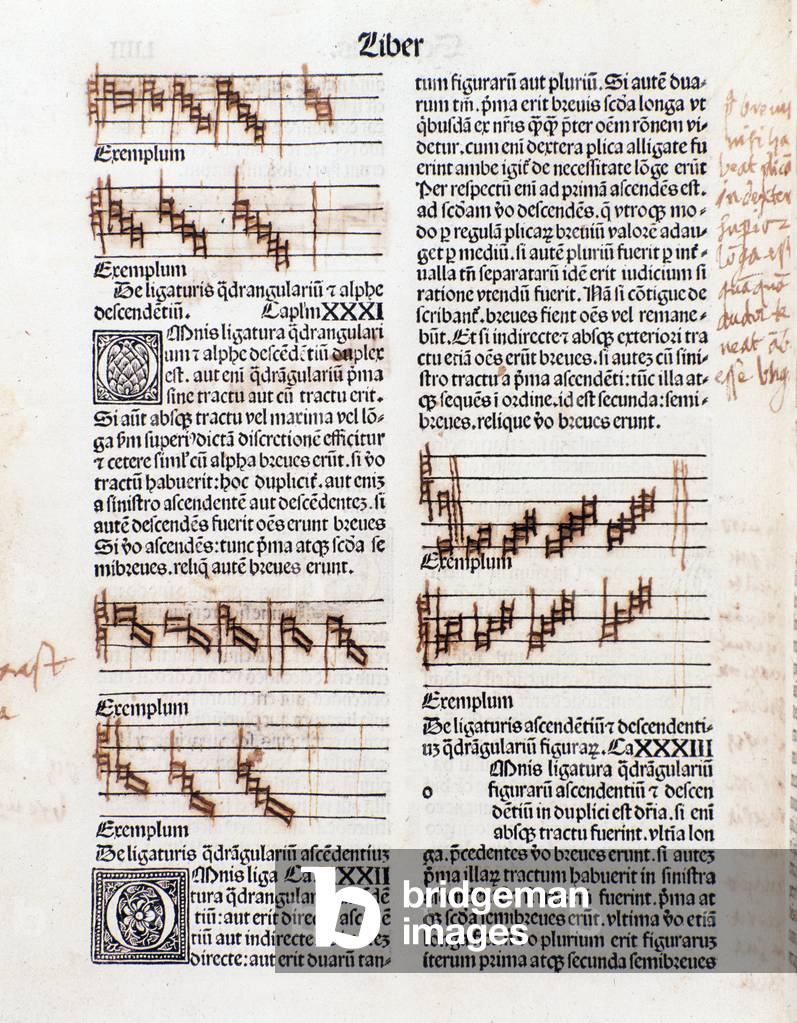 Liber
Exemplum
Exemplum
De ligaturis q̄drangulariū ⁊ alphe
descendētiū. Caplm̄ XXXI
OMnis ligatura q̄drangulari
um ⁊ alphe descēdētiū duplex
est. aut eni q̄drāgulariū p̄ma
sine tractu aut cū tractu erit.
Si aūt absq̄ tractu vel maxima vel lō-
ga dictā discretionē efficitur
⁊ cetere siml̓ cū alpha breues erūt. si ṽo
tractū habuerit: hoc duplicit̓. aut eniz
a sinistro ascendentē aut descēdentez. si
autē descendēs fuerit oēs erunt breues
Si ṽo ascendēs: tunc p̄ma atq̄ scd̄a se
mibreues. reliq̄ autē breues erunt.
Exemplum
Exemplum
De ligaturis q̄drāgulariū ascēdentiuz
OMnis liga XXII
tura q̄drangular
tiū: aut erit direc
tiū aut indirecte
directe: aut erit duarū tan-
tum figurarū aut pluriū. Si autē dua-
rum tm̄. p̄ma erit breuis scd̄a longa vt
q̄busdā ex nr̄is q̄q̄ p̄ter oēm rōnem vi-
detur. cum eni dextera plica alligate fu
erint ambe igit̓ de necessitate lōge erūt
Per respectū eni ad primā ascendēs est.
ad scd̄am ṽo descendēs. q̄ vtroq̄ mo-
do p̱ regulā plicaꝝ breuiū valorē adau-
get p̱ mediū. si autē pluriū fuerit p̱ int̓-
ualla tn̄ separatarū idē erit iudicium si
ratione vtendū fuerit. Nā si cōtigue de
scribant̓. breues fient oēs vel remane-
būt. Et si indirecte ⁊ absq̄ exteriori tra
ctu etiā oēs erūt breues. si autez cū sini-
stro tractu a p̄ma ascendēti: tūc illa at-
q̄ sequēs ī ordine. id est secunda: semi-
breues. relique ṽo breues erunt.
Exemplum
Exemplum
De ligaturis ascendētiū ⁊ descendenti-
uz q̄drāgulariū figuraꝝ. Ca XXXIII
OMnis ligatura q̄drāgulariū
o figurarū ascendentiū ⁊ descen
dētiū in duplici est dr̄ia. si eni
absq̄ tractu fuerint. vltīa lon
ga. p̄cedentes ṽo breues erunt. si autez
p̄ma illaꝝ tractum habuerit in sinistra
fuerint. p̄ma at
q̄ scd̄a semibreues erūt. vltima ṽo etiā
ṽo plurium erit figuraruz
iterum prima atq̄ secunda semibreues
bridgeman
images